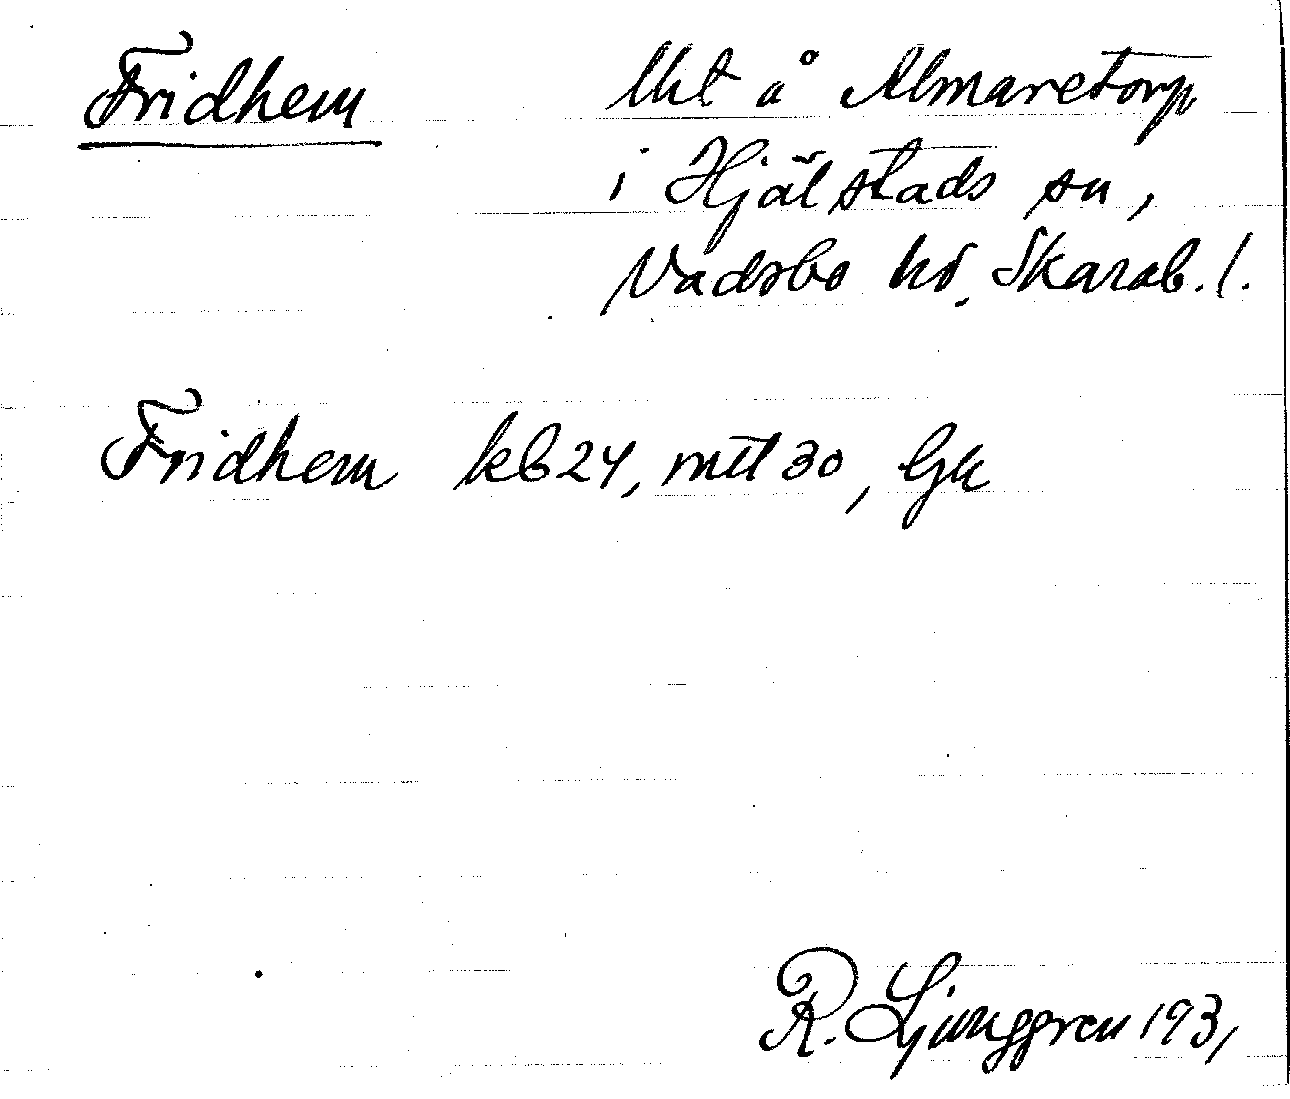 Fridhem
Uht å Almaretorp
i Hjälstads sn,
Vadsbo hd. Skarab. l.
Fridhem kb24, mtl 30, Gk
R. Ljunggren 1931